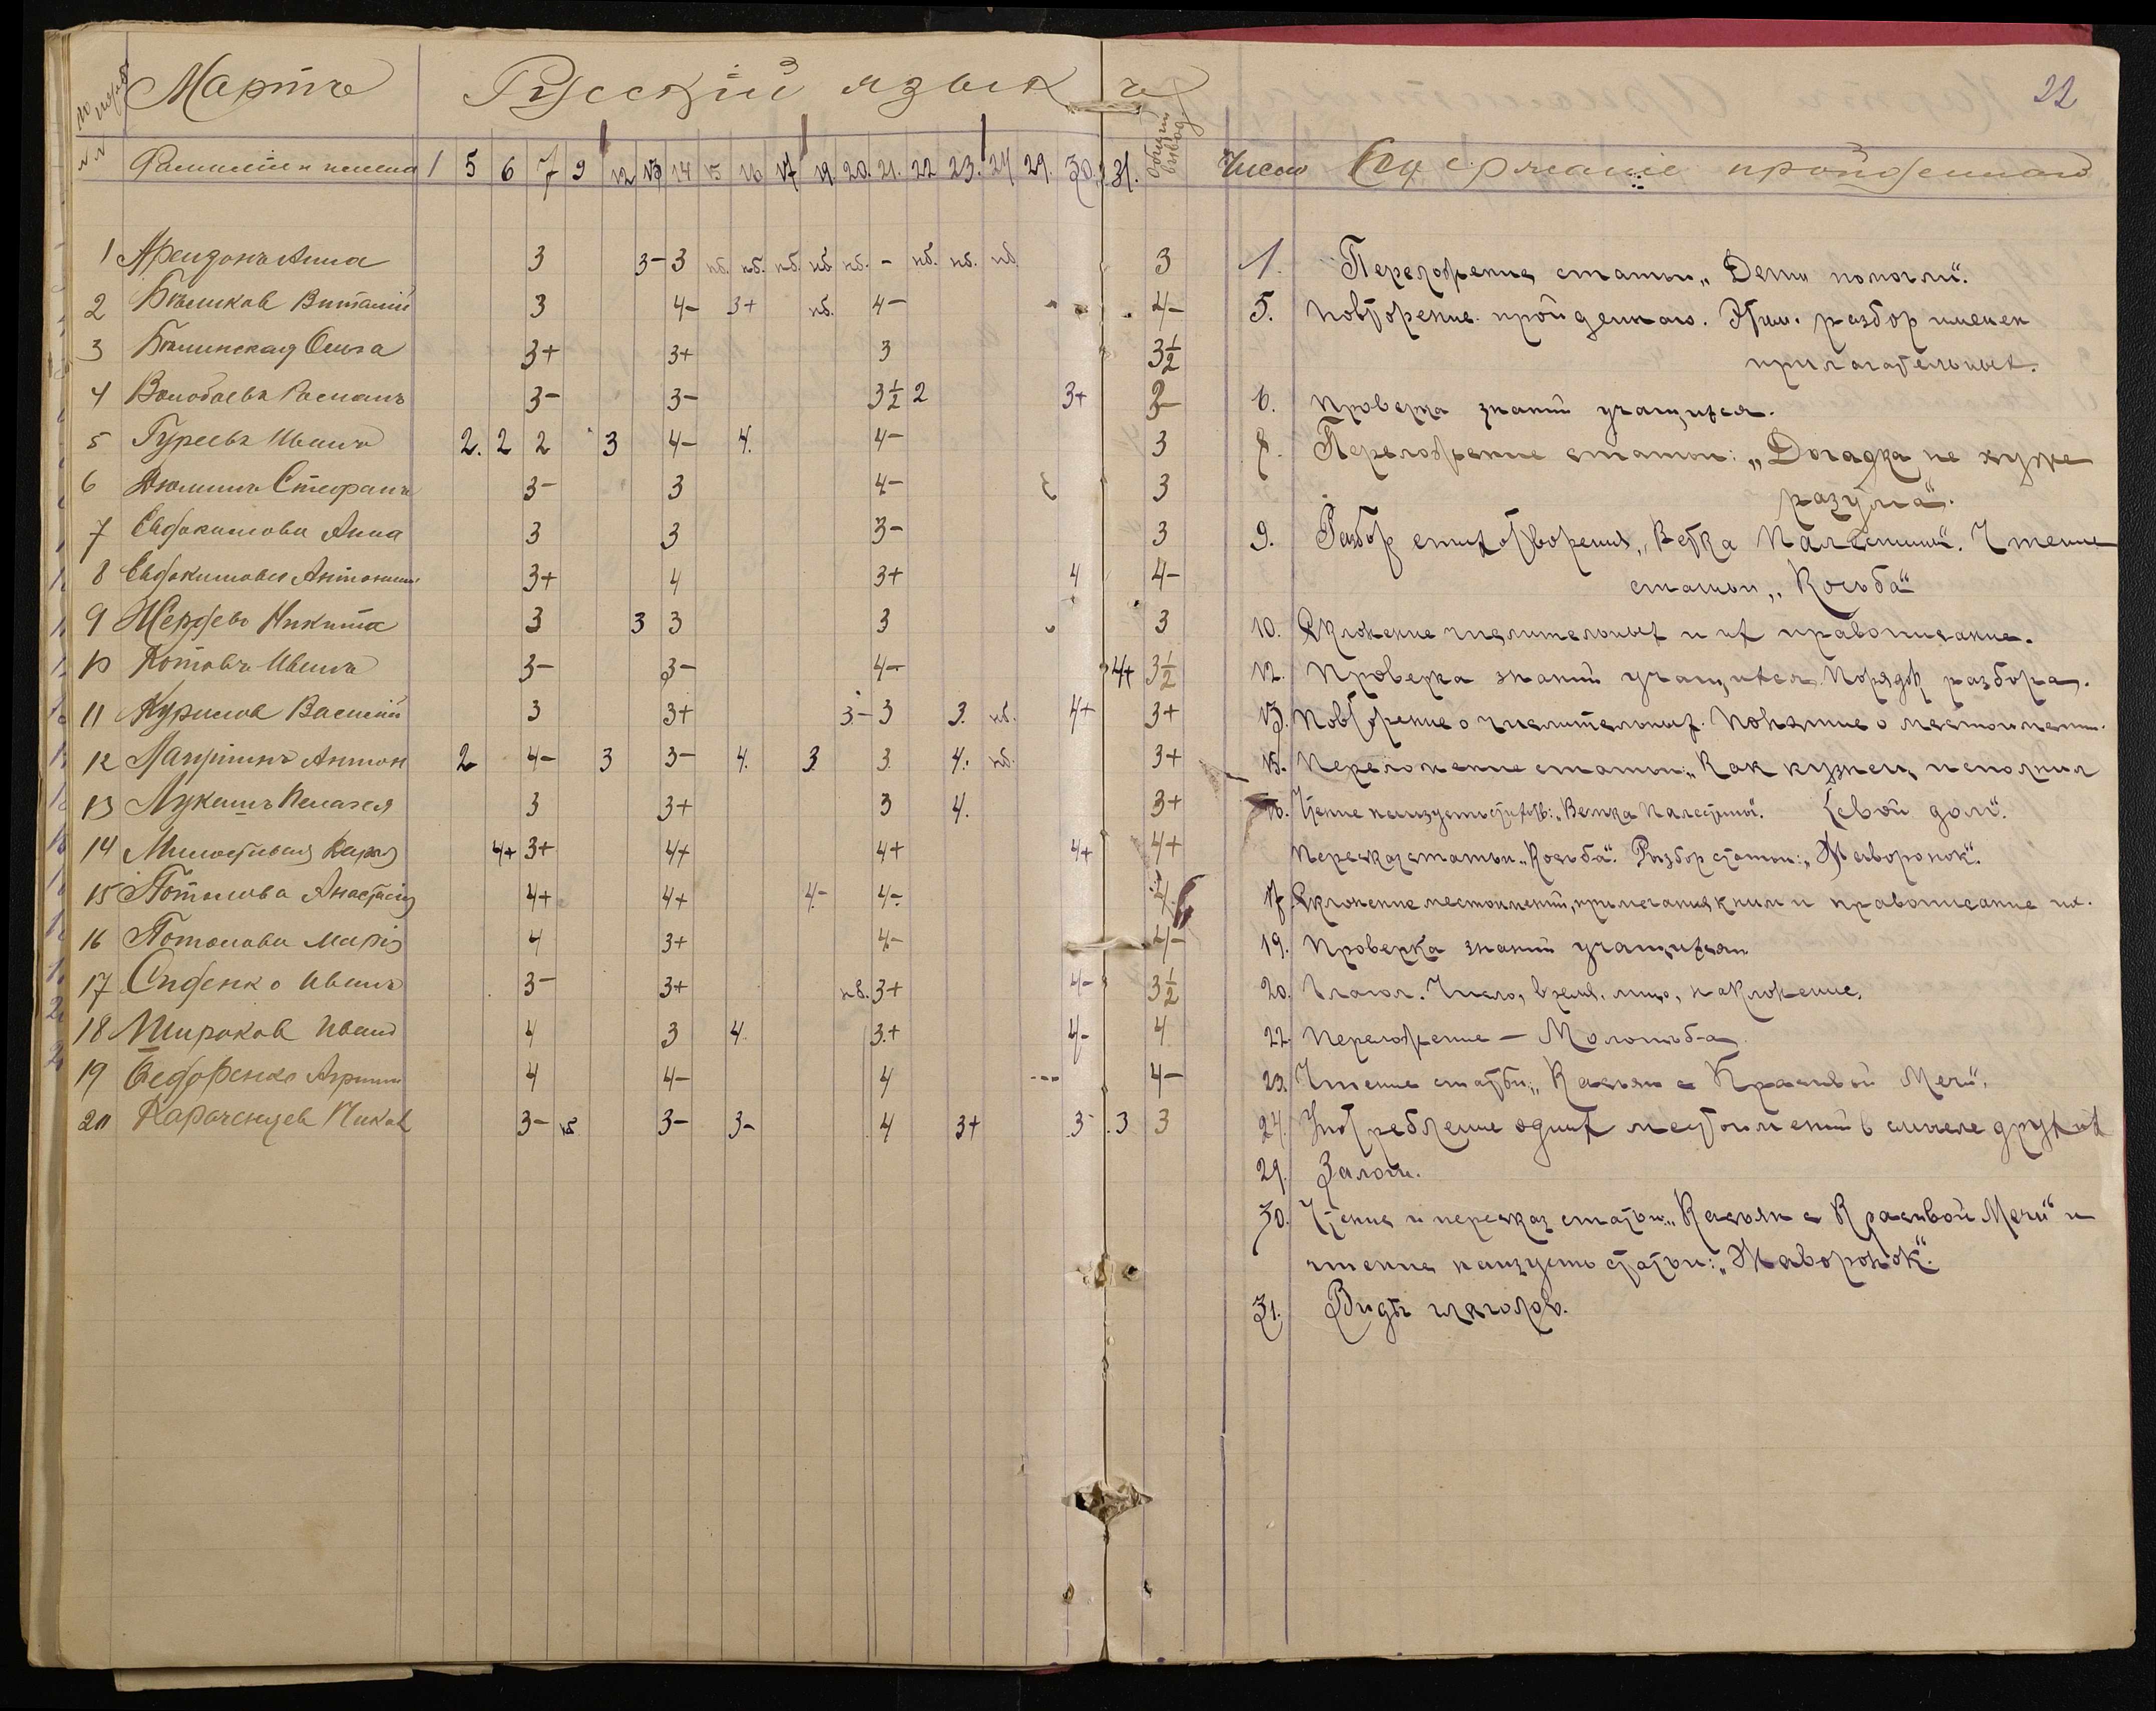 Мартъ Русскій языкъ
22
NN Фамилія и имена 1 5 6 7 9 12 13 14 15 16 17 19 20. 21. 22 23. 24 29. 30. 31. Общій вывод.
Число Содержаніе пройденнаго
1 Анна 3 3- 3 нб. нб. нб. нб. нб. - нб. нб. нб. 3
2 Бѣликов Виталій 3 4- 3+ нб. 4- 4-
3 Бѣлинская Ольга 3+ 3+ 3 3½
4 Романъ 3- 3- 3½ 2 3+ 3-
5 Гуреевъ Иванъ 2. 2 2 3 4- 4. 4- 3
6 Стефанъ 3- 3 4- 3
7 Евдокимова Анна 3 3 3- 3
8 Евдокимова Антонина 3+ 4 3+ 4 4-
9 Жердевъ Никита 3 3 3 3 3
10 Котовъ Иванъ 3- 3- 4- 4+ 3½
11 Курилов Василій 3 3+ 3- 3 3. нб. 4+ 3+
12 Антон 2 4- 3 3- 4. 3. 3. 4. нб. 3+
13 Пелагея 3 3+ 3 4. 3+
14 Милостивая 4+ 3+ 4+ 4+ 4+ 4+
15 Потапова Анастасія 4+ 4+ 4- 4- 4
16 Потапова Марія 4 3+ 4- 4-
17 Сиденко Иванъ 3- 3+ нб. 3+ 4- 3½
18 Широков Иванъ 4 3 4. 3+ 4- 4
19 Федоренко 4 4- 4 4-
20 Карагенцев 3- нб 3- 3- 4 3+ 3- 3 3
1. Переложение статьи „Дети помогли".
5. Повторение пройденнаго. Этим. разбор имен
прилагательных.
6. Проверка знаний учащихся.
8. Переложение статьи: „Догадка не хуже
разума".
9. Разбор стихотворения „Ветка Палестины". Чтение
статьи „Косьба"
10. Склонение числительных и их правописание.
12. Проверка знаний учащихся. Порядок разбора.
13. Повторение о числительных. Понятие о местоимении.
15. Переложение статьи: „Как кузнец исполнил
свой долг".
16. Чтение наизусть стихотв: „Ветка Палестины".
Пересказ статьи „Косьба". Разбор статьи: „Жаворонок".
17. Склонение местоимений, примечания к ним и правописание их.
19. Проверка знаний учащихся
20. Глагол. Число, время, лицо, наклонение.
22. Переложение — Молотьба.
23. Чтение статьи „Касьян с Красивой Мечи".
24. Употребление одних местоимений в смысле других
29. Залоги.
30. Чтение и пересказ статьи „Касьян с Красивой Мечи" и
чтение наизусть статьи: „Жаворонок".
31. Виды глаголов.